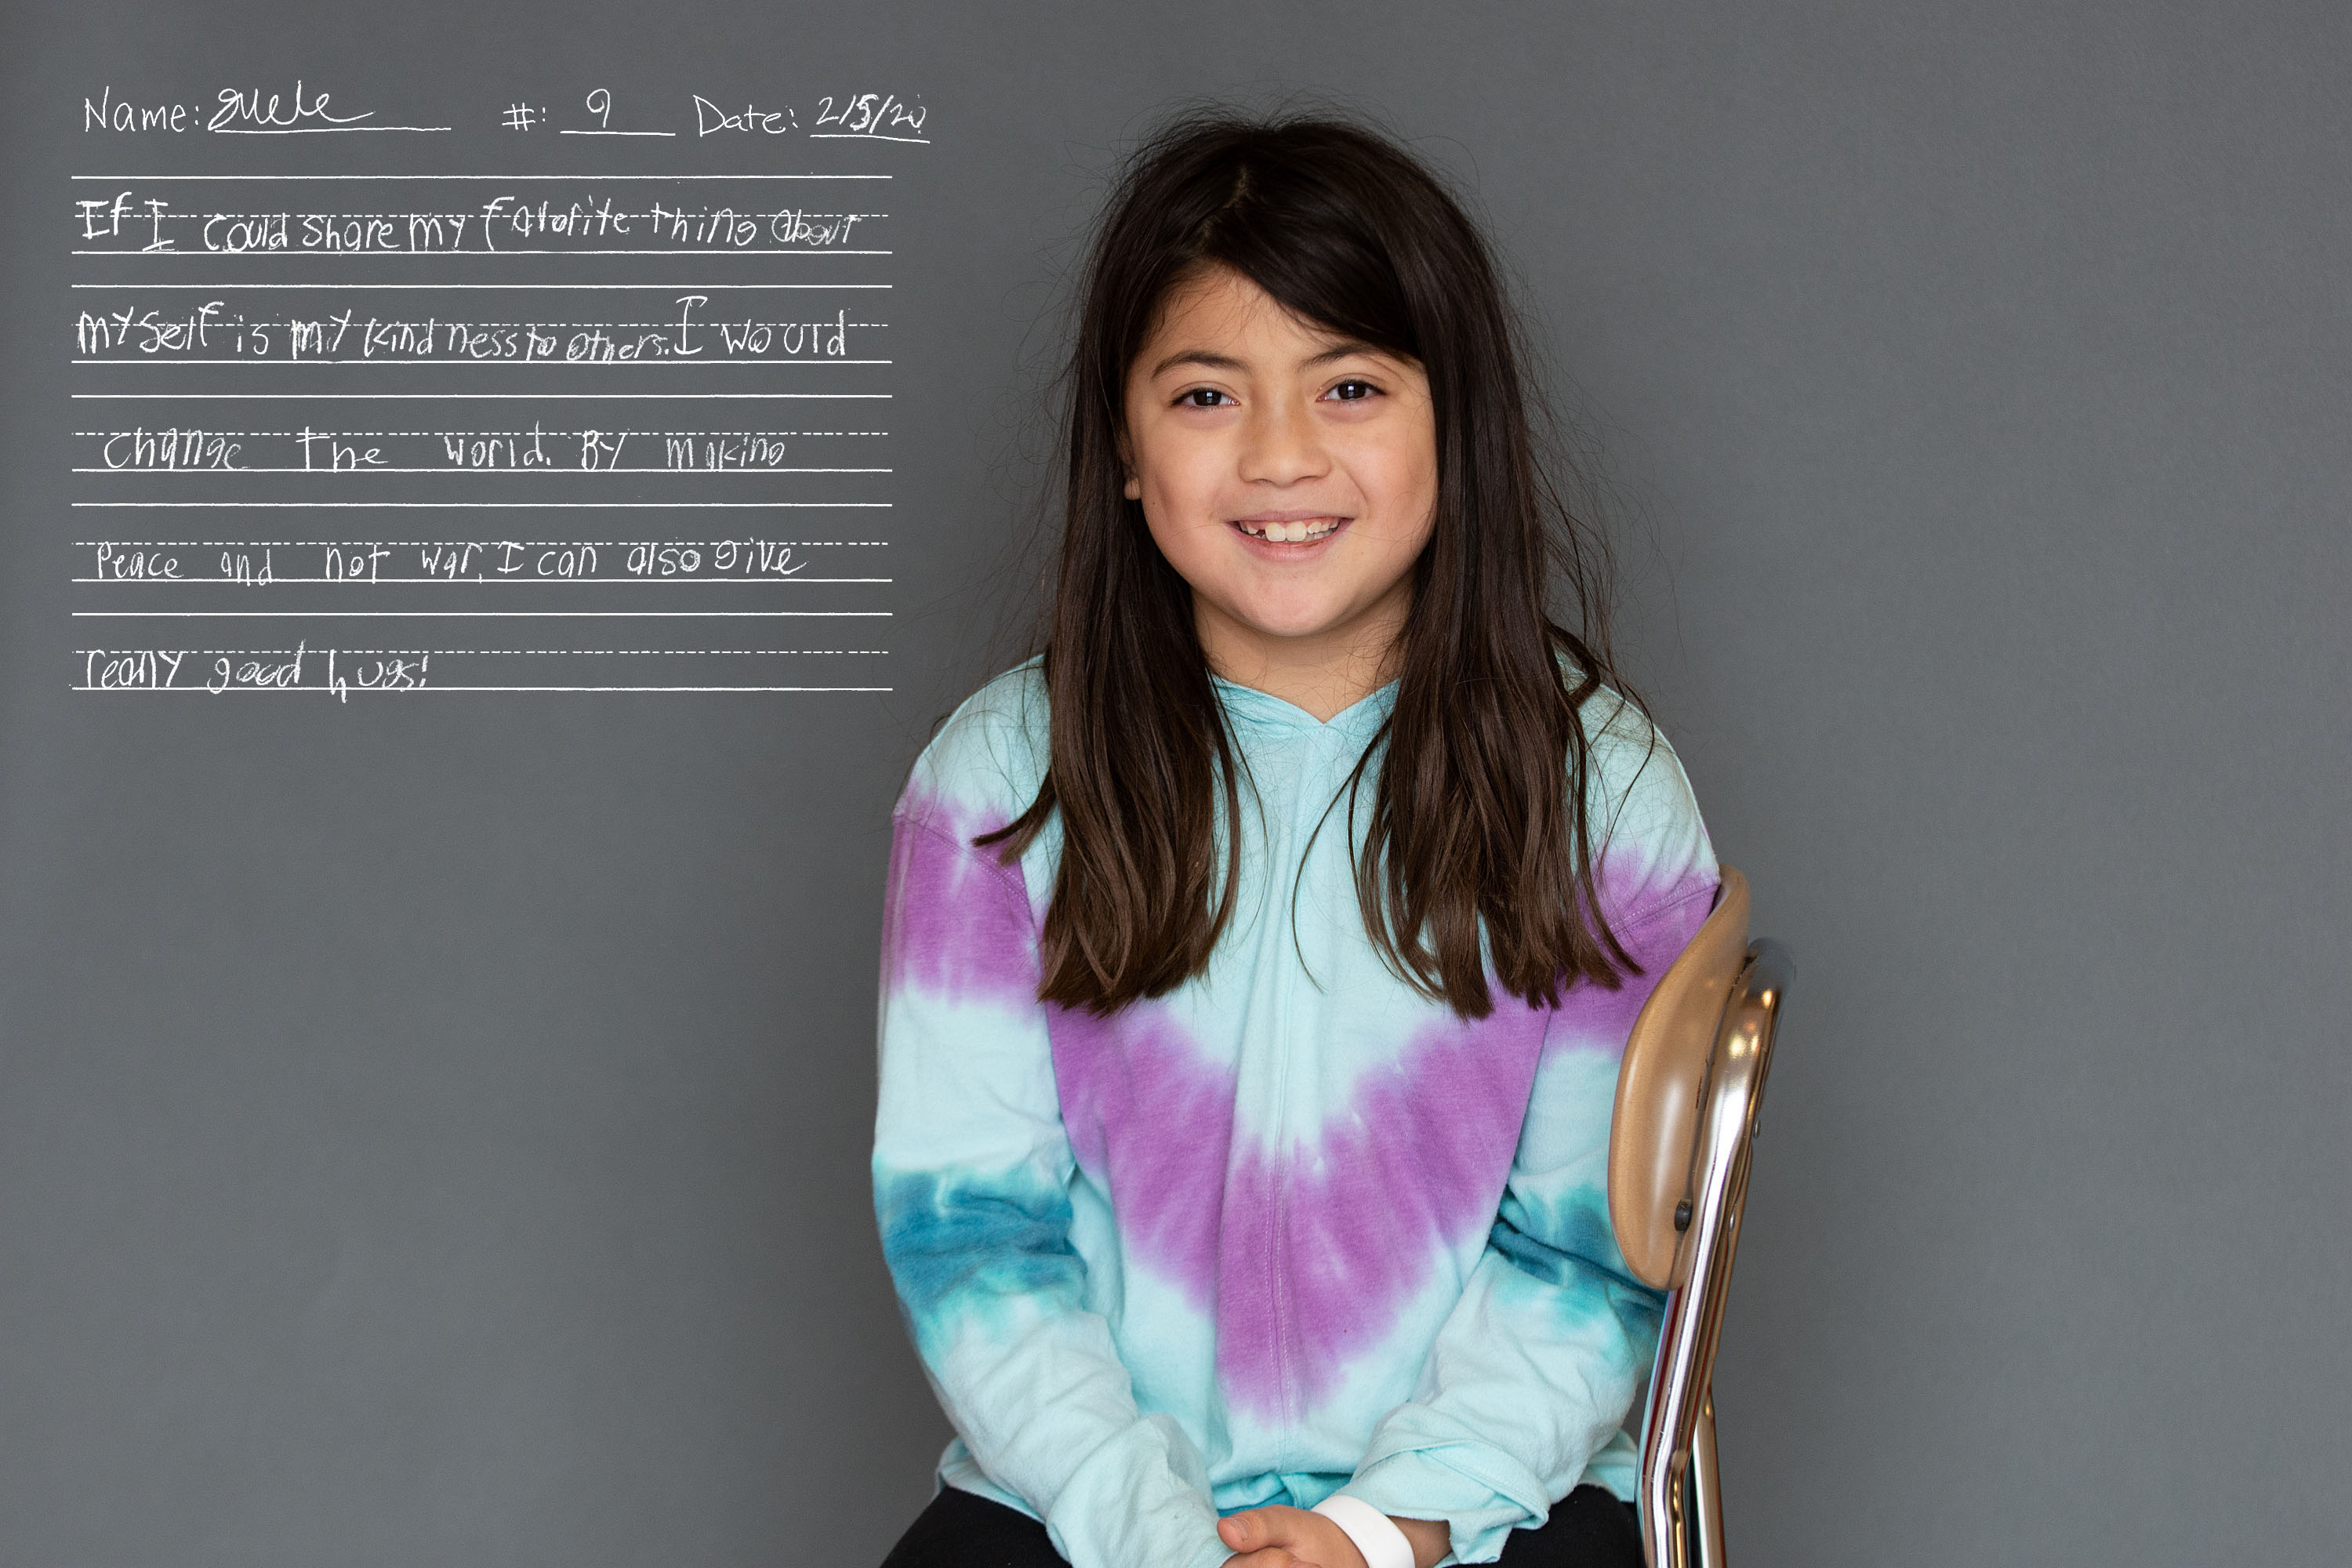 Name: #: 9 Date: 2/5/20
If I could share my favorite thing about
myself is my kindness to others. I would
change the world. By making
Peace and not war. I can also give
really good hugs!